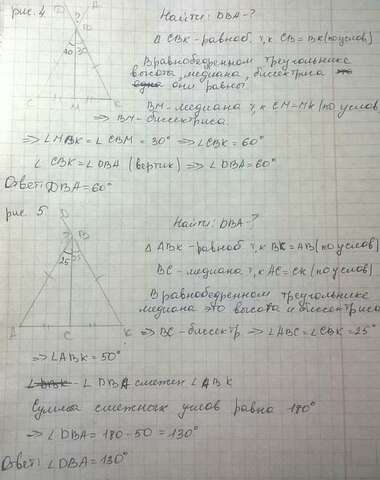 рис. 4
Найти: DBA-?
Δ CBK-равноб т,к CB=BK(по услов)
В равнобедренном треугольнике
высота, медиана, биссектриса это
одно они равны.
BM-медиана т,к CM=MK(по услов
⇒ BM-биссектриса
A D
?
B
30 30
C M K
⇒ ∠MBK=∠CBM=30° ⇒ ∠CBK=60°
∠CBK=∠DBA (вертик) ⇒ ∠DBA=60°
Ответ: DBA=60°
рис. 5
Найти: DBA-?
Δ ABK-равноб т,к BK=AB(по услов)
BC-медиана т,к AC=CK(по услов)
В равнобедренном треугольнике
медиана это высота и биссектриса
⇒ BC-биссектр ⇒ ∠ABC=∠CBK=25°
D
?
B
25 25
A C K
⇒ ∠ABK=50°
∠DBK - ∠DBA смежен ∠ABK
Сумма смежных углов равна 180°
⇒ ∠DBA=180-50=130°
Ответ: ∠DBA=130°